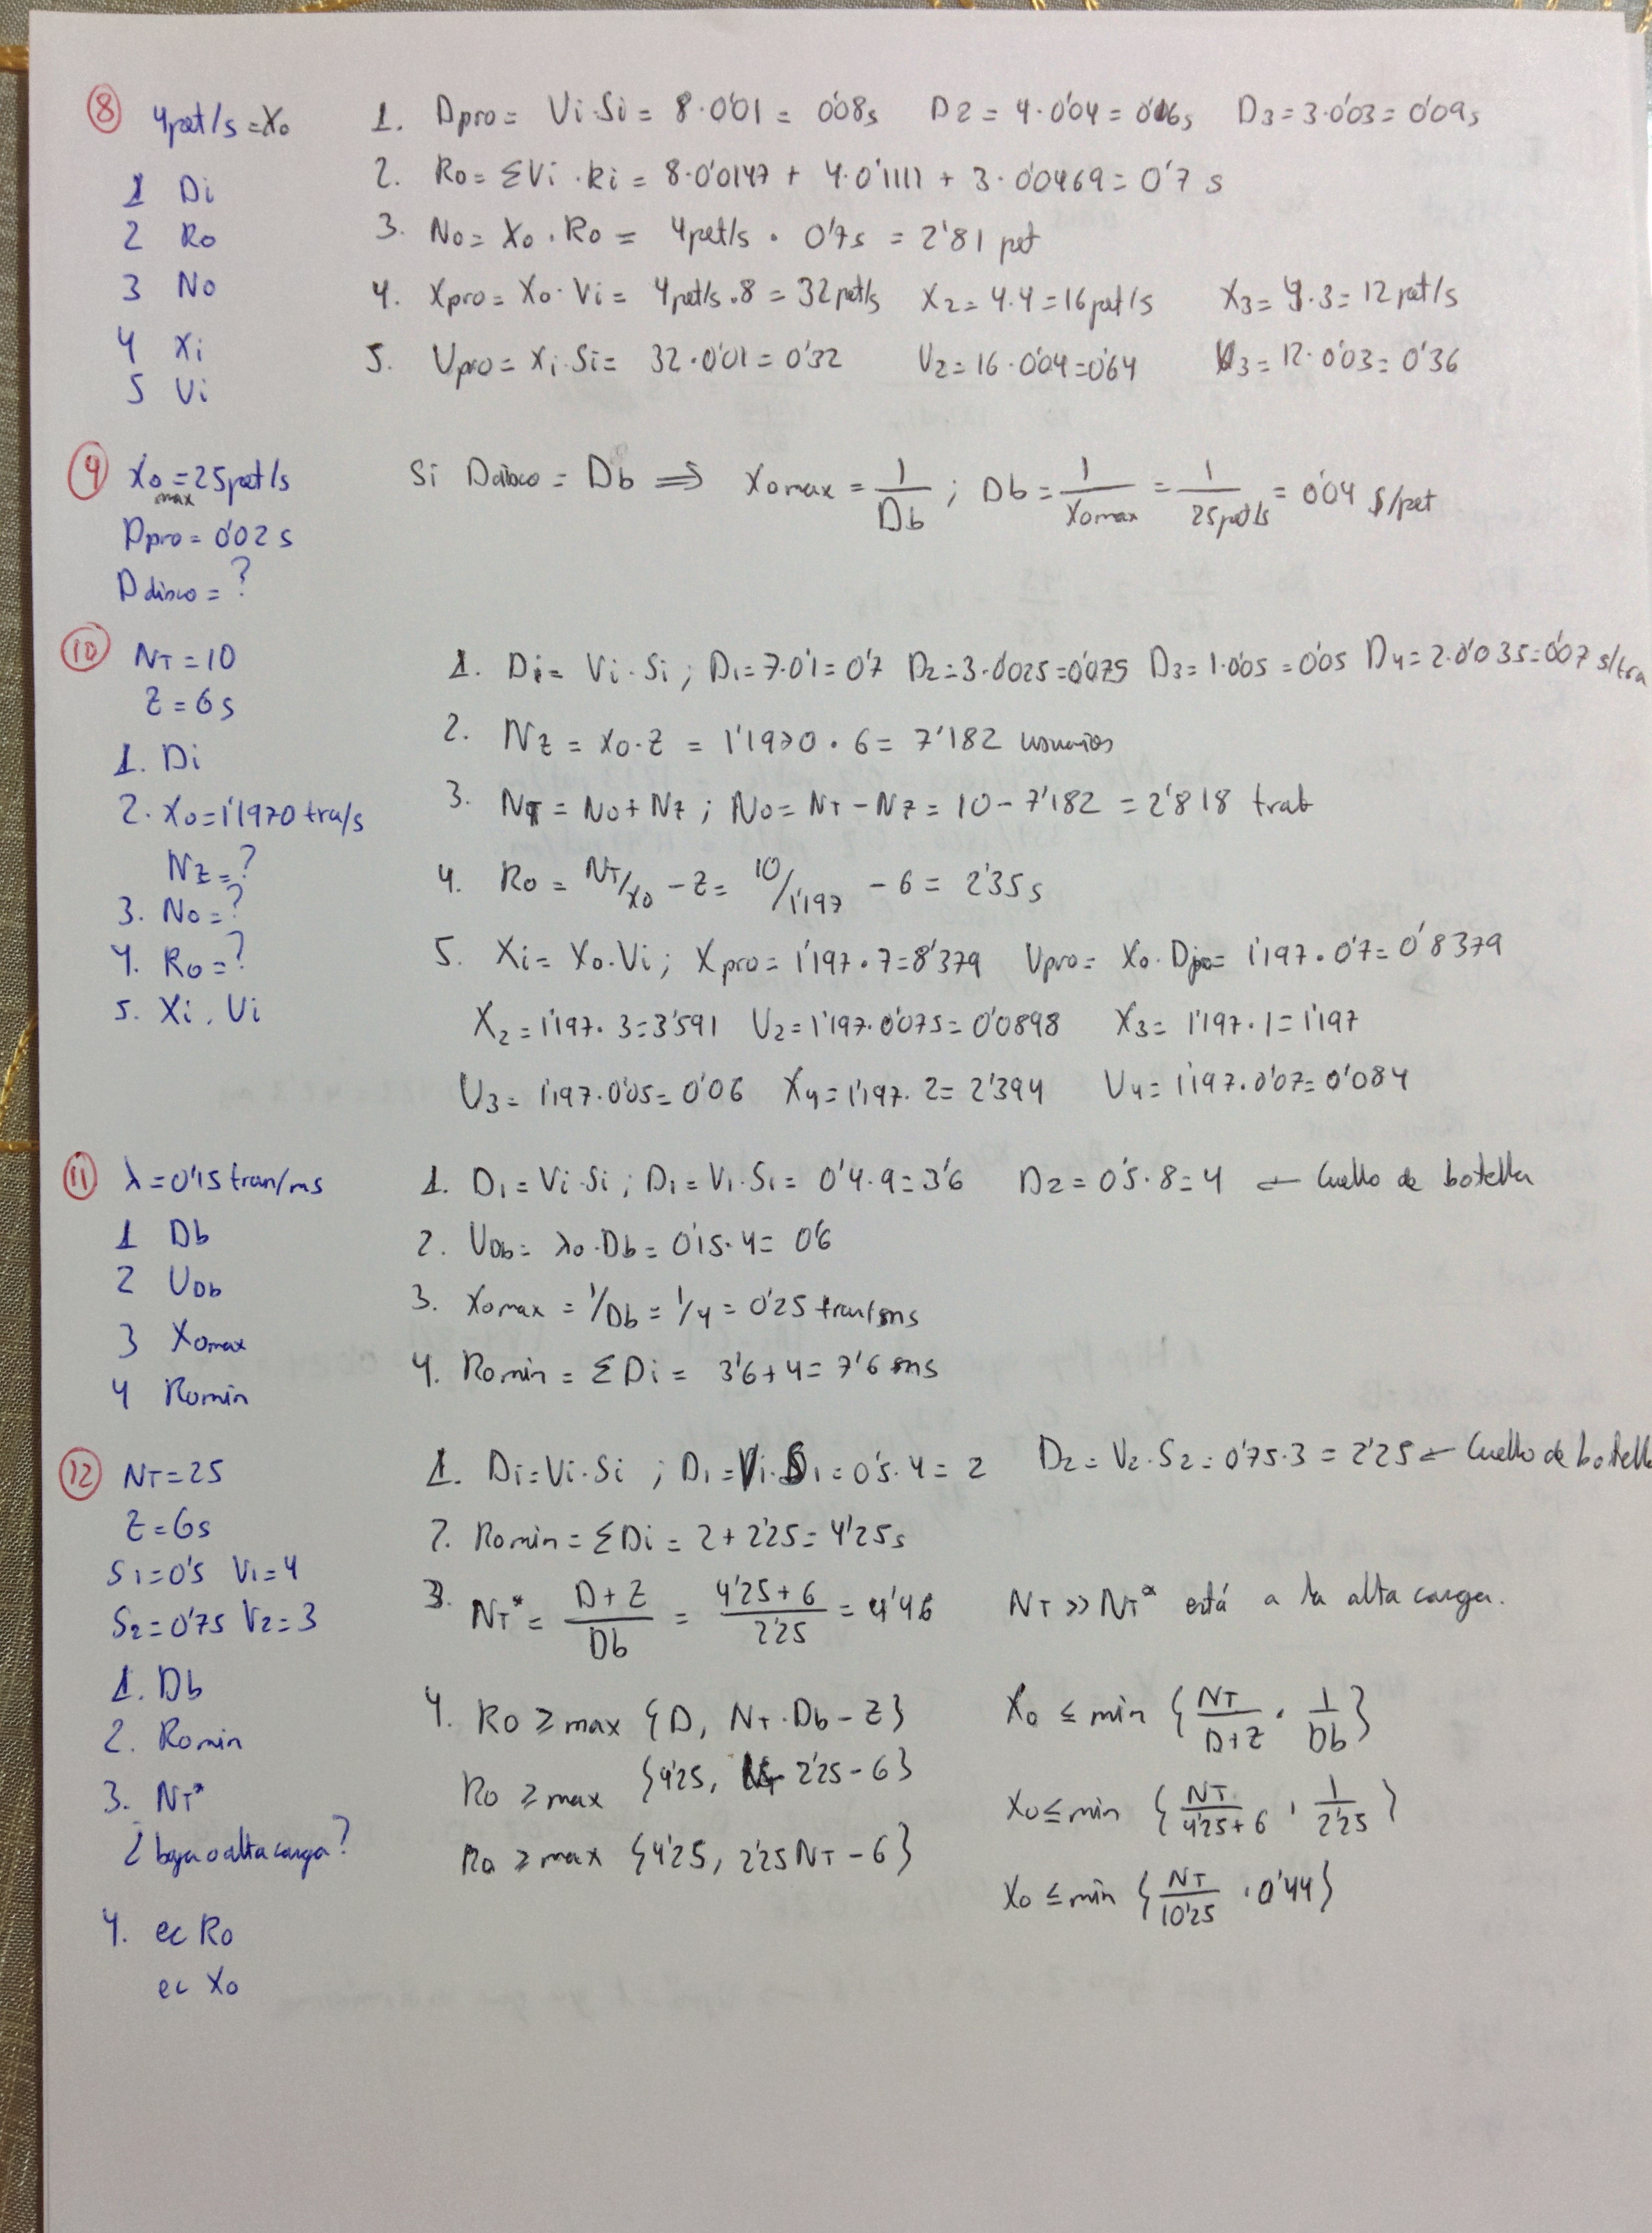 8 4pet/s = X0
1 Di
2 R0
3 N0
4 Xi
5 Ui
1. Dpro = Vi·Si = 8·0'01 = 0'08s D2 = 4·0'04 = 0'16s D3 = 3·0'03 = 0'09s
2. R0 = ΣVi·Ri = 8·0'0147 + 4·0'1111 + 3·0'0469 = 0'7 s
3. N0 = X0·R0 = 4pet/s · 0'7s = 2'81 pet
4. Xpro = X0·Vi = 4pet/s·8 = 32pet/s X2 = 4·4 = 16pet/s X3 = 4·3 = 12pet/s
5. Upro = Xi·Si = 32·0'01 = 0'32 U2 = 16·0'04 = 0'64 U3 = 12·0'03 = 0'36
9 X0max = 25pet/s
Dpro = 0'02 s
Ddisco = ?
Si Ddisco = Db ⇒ X0max = 1/Db ; Db = 1/X0max = 1/25pet/s = 0'04 s/pet
10 NT = 10
Z = 6s
1. Di
2. X0 = 1'1970 tra/s
NZ = ?
3. N0 = ?
4. R0 = ?
5. Xi, Ui
1. Di = Vi·Si ; D1 = 7·0'1 = 0'7 D2 = 3·0'025 = 0'075 D3 = 1·0'05 = 0'05 D4 = 2·0'035 = 0'07 s/tra
2. NZ = X0·Z = 1'1970 · 6 = 7'182 usuarios
3. NT = N0 + NZ ; N0 = NT - NZ = 10 - 7'182 = 2'818 trab
4. R0 = NT/X0 - Z = 10/1'197 - 6 = 2'35 s
5. Xi = X0·Vi ; Xpro = 1'197·7 = 8'379 Upro = X0·Dpro = 1'197·0'7 = 0'8379
X2 = 1'197·3 = 3'591 U2 = 1'197·0'075 = 0'0898 X3 = 1'197·1 = 1'197
U3 = 1'197·0'05 = 0'06 X4 = 1'197·2 = 2'394 U4 = 1'197·0'07 = 0'084
11 λ = 0'15 tran/ms
1 Db
2 UDb
3 X0max
4 R0min
1. D1 = Vi·Si ; D1 = V1·S1 = 0'4·9 = 3'6 D2 = 0'5·8 = 4 ← Cuello de botella
2. UDb = λ0·Db = 0'15·4 = 0'6
3. X0max = 1/Db = 1/4 = 0'25 tran/ms
4. R0min = ΣDi = 3'6 + 4 = 7'6 ms
12 NT = 25
Z = 6s
S1 = 0'5 V1 = 4
S2 = 0'75 V2 = 3
1. Db
2. R0min
3. NT*
¿baja o alta carga?
4. ec R0
ec X0
1. Di = Vi·Si ; D1 = V1·S1 = 0'5·4 = 2 D2 = V2·S2 = 0'75·3 = 2'25 ← Cuello de botell
2. R0min = ΣDi = 2 + 2'25 = 4'25s
3. NT* = D+Z/Db = 4'25+6/2'25 = 4'46 NT >> NT* está a la alta carga.
4. R0 ≥ max {D, NT·Db - Z} X0 ≤ min {NT/D+Z, 1/Db}
R0 ≥ max {4'25, NT 2'25 - 6} X0 ≤ min {NT/4'25+6, 1/2'25}
R0 ≥ max {4'25, 2'25NT - 6} X0 ≤ min {NT/10'25, 0'44}